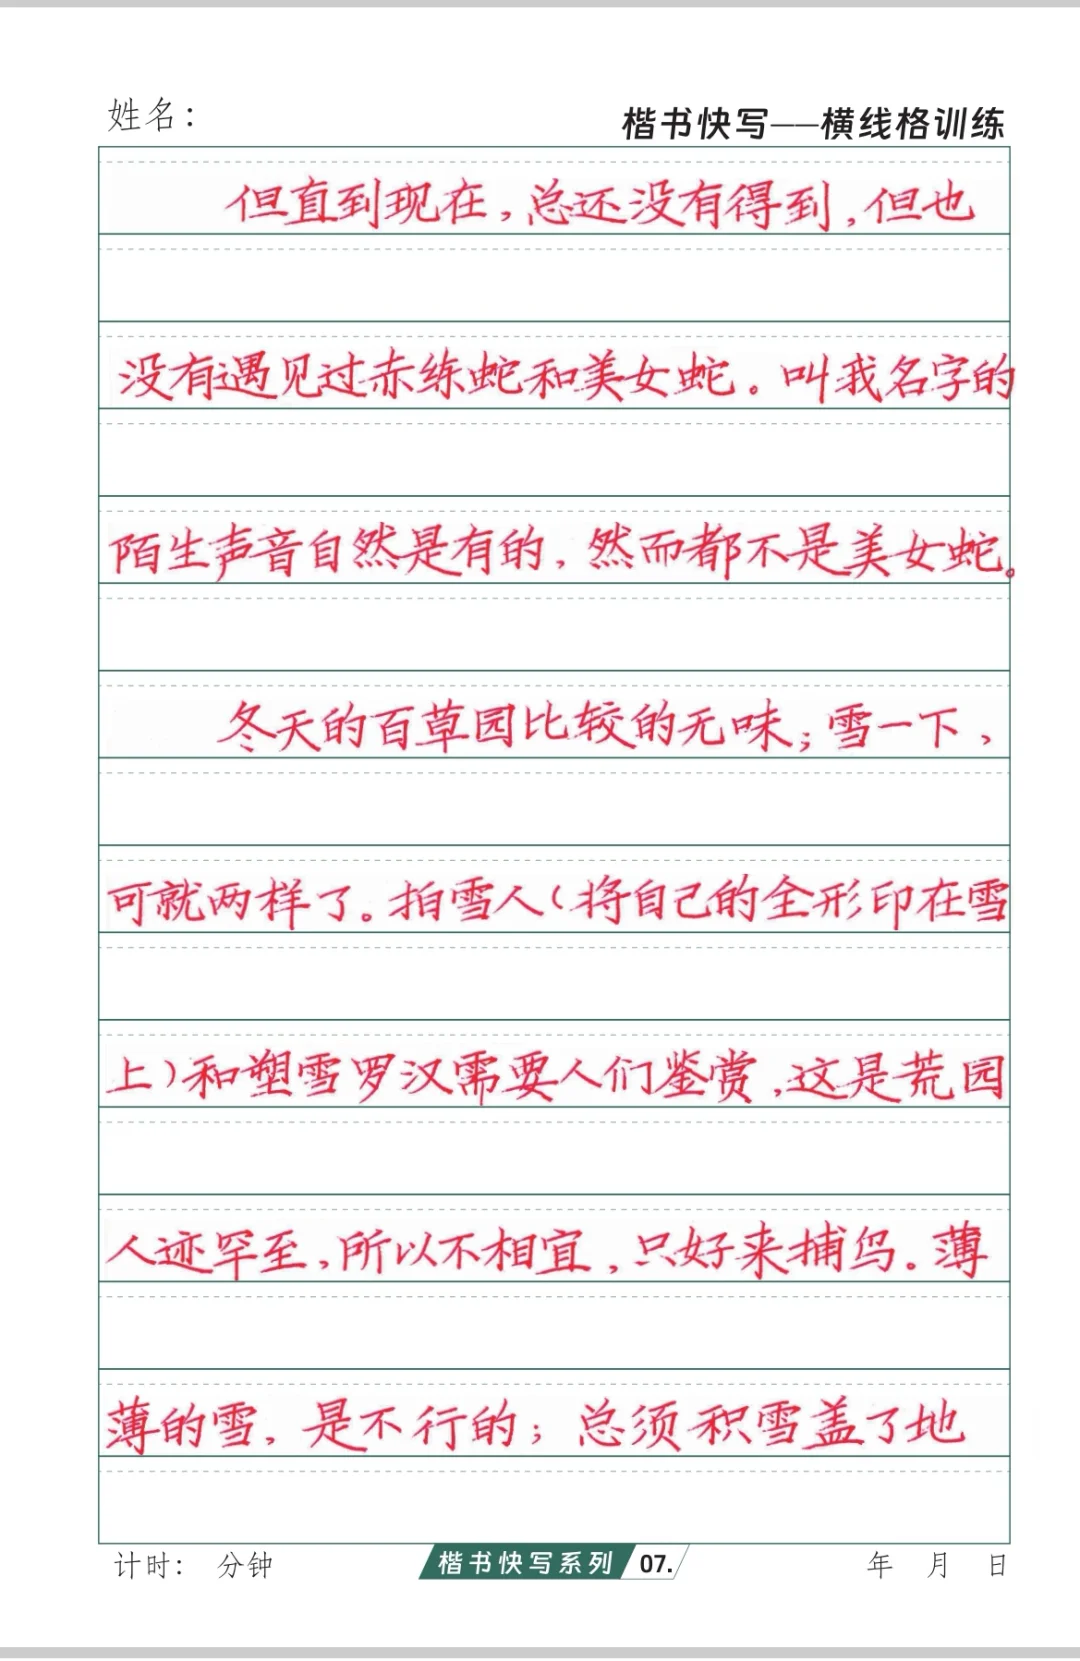 姓名：
楷书快写——横线格训练
但直到现在，总还没有得到，但也
没有遇见过赤练蛇和美女蛇。叫我名字的
陌生声音自然是有的，然而都不是美女蛇。
冬天的百草园比较的无味；雪一下，
可就两样了。拍雪人（将自己的全形印在雪
上）和塑雪罗汉需要人们鉴赏，这是荒园
人迹罕至，所以不相宜，只好来捕鸟。薄
薄的雪，是不行的；总须积雪盖了地
计时： 分钟
楷书快写系列 07.
年 月 日